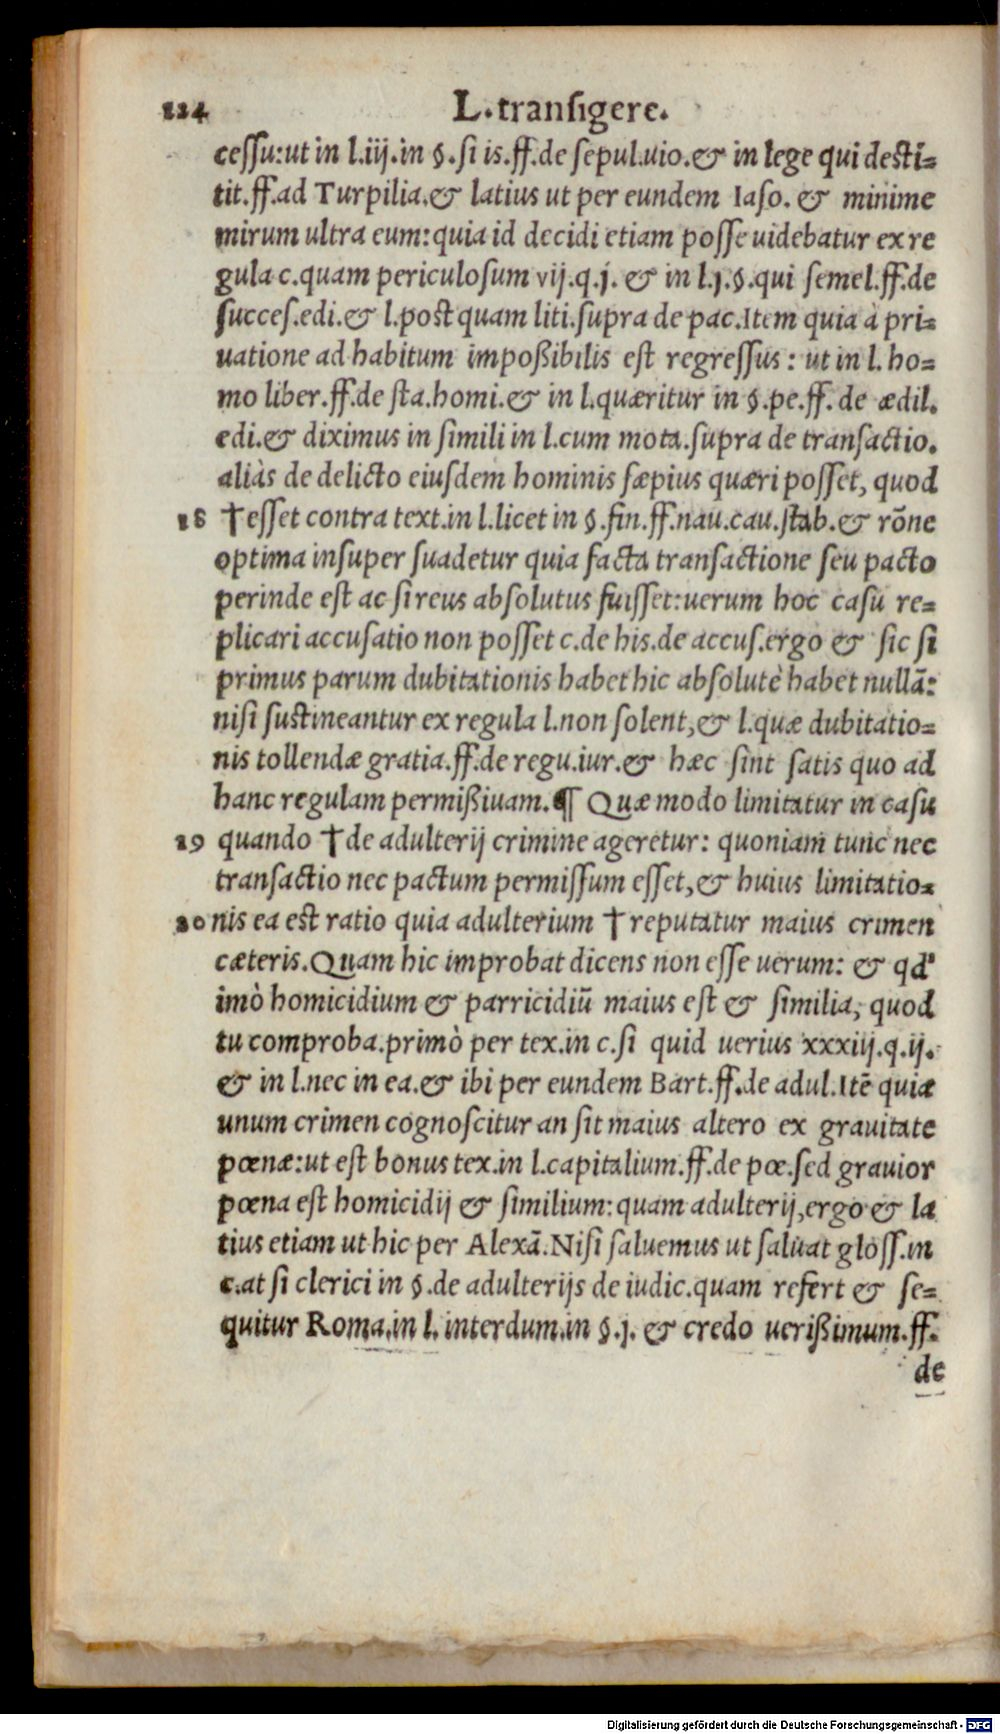 224 L. transigere.
cessu: ut in l.iij.in §.si is.ff.de sepul.uio.& in lege qui desti=
tit.ff.ad Turpilia.& latius ut per eundem Iaso. & minime
mirum ultra eum: quia id decidi etiam posse uidebatur ex re
gula c.quam periculosum vij.q.j. & in l.j.§.qui semel.ff.de
succes.edi.& l.post quam liti.supra de pac.Item quia à pri=
uatione ad habitum impoßibilis est regressus: ut in l. ho=
mo liber.ff.de sta.homi.& in l.quæritur in §.pe.ff. de ædil.
edi.& diximus in simili in l.cum mota.supra de transactio.
aliàs de delicto eiusdem hominis sæpius quæri posset, quod
18 †esset contra text.in l.licet in §.fin.ff.nau.cau.stab.& rõne
optima insuper suadetur quia facta transactione seu pacto
perinde est ac si reus absolutus fuisset: uerum hoc casu re=
plicari accusatio non posset c.de his.de accus.ergo & sic si
primus parum dubitationis habet hic absolutè habet nullã:
nisi sustineantur ex regula l.non solent,& l.quæ dubitatio=
nis tollendæ gratia.ff.de regu.iur.& hæc sint satis quo ad
hanc regulam permißiuam.¶ Quæ modo limitatur in casu
19 quando †de adulterij crimine ageretur: quoniam tunc nec
transactio nec pactum permissum esset,& huius limitatio=
20 nis ea est ratio quia adulterium † reputatur maius crimen
cæteris.Quam hic improbat dicens non esse uerum: & qd'
imò homicidium & parricidiũ maius est & similia, quod
tu comproba.primò per tex.in c.si quid uerius xxxiij.q.ij.
& in l.nec in ea.& ibi per eundem Bart.ff.de adul.Itẽ quia
unum crimen cognoscitur an sit maius altero ex grauitate
pœnæ: ut est bonus tex.in l.capitalium.ff.de pœ.sed grauior
pœna est homicidij & similium: quam adulterij,ergo & la
tius etiam ut hic per Alexã.Nisi saluemus ut saluat gloss.in
c.at si clerici in §.de adulterijs de iudic.quam refert & se=
quitur Roma.in l. interdum.in §.j. & credo uerißimum.ff.
de
Digitalisierung gefördert durch die Deutsche Forschungsgemeinschaft - DFG